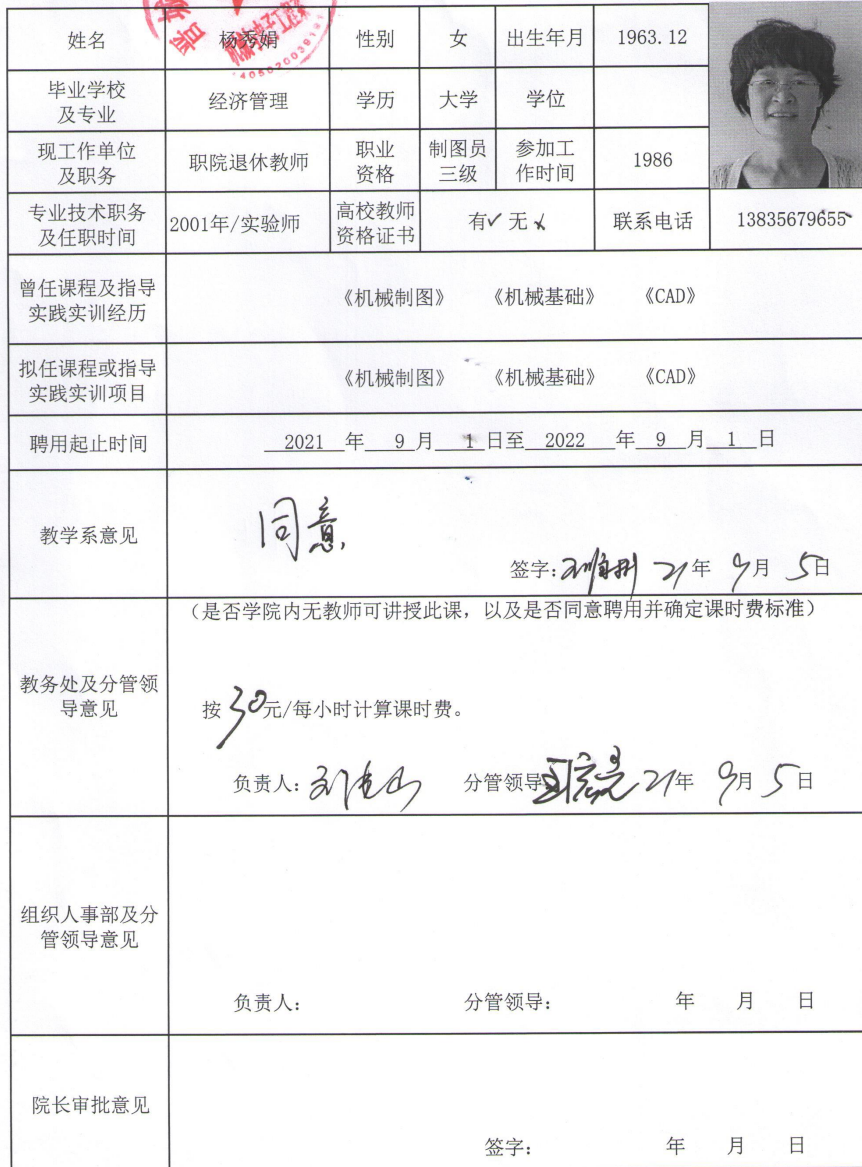 姓名 杨秀娟 性别 女 出生年月 1963.12
毕业学校
及专业 经济管理 学历 大学 学位
现工作单位
及职务 职院退休教师 职业
资格 制图员
三级 参加工
作时间 1986
专业技术职务
及任职时间 2001年/实验师 高校教师
资格证书 有✓ 无 联系电话 13835679655
曾任课程及指导
实践实训经历 《机械制图》 《机械基础》 《CAD》
拟任课程或指导
实践实训项目 《机械制图》 《机械基础》 《CAD》
聘用起止时间 2021 年 9 月 1 日至 2022 年 9 月 1 日
教学系意见 同意
签字: 21年 9月 5日
(是否学院内无教师可讲授此课,以及是否同意聘用并确定课时费标准)
教务处及分管领
导意见
按30元/每小时计算课时费。
负责人: 分管领导 21年 9月 5日
组织人事部及分
管领导意见
负责人: 分管领导: 年 月 日
院长审批意见
签字: 年 月 日